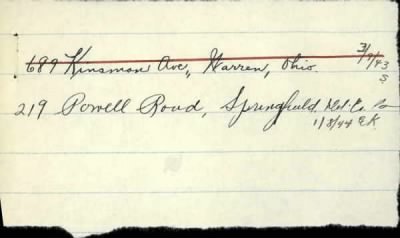 689 Kinsman Ave., Warren, Ohio. 3/9/43
S
219 Powell Road, Springfield, Del. Co. Pa
1/8/44 EK